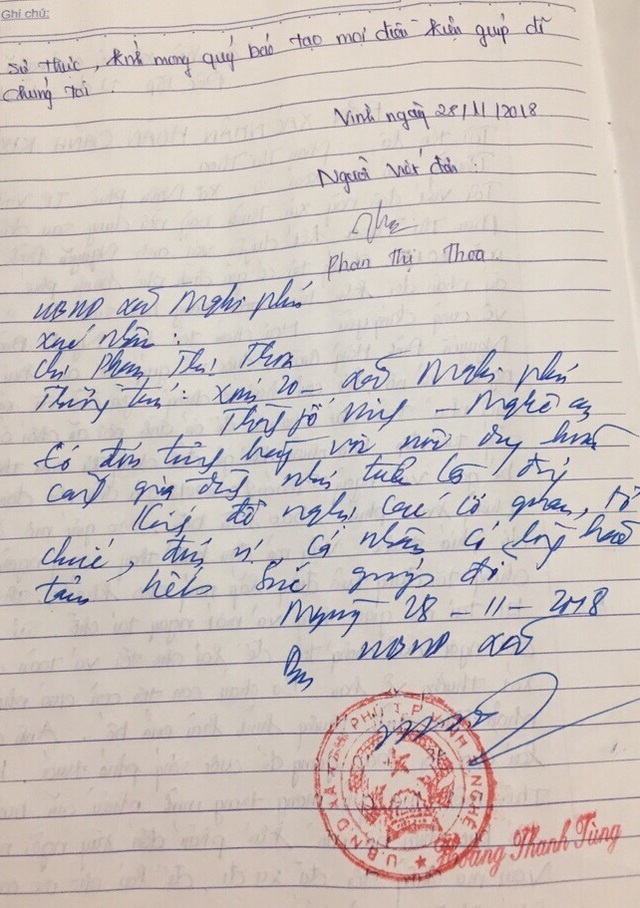 Ghi chú:
sự thực, kính mong quý báo tạo mọi điều kiện giúp đỡ
chúng tôi.
Vinh ngày 28/11/2018
Người viết đơn.
Phan Thị Thoa
UBND xã Nghi phú
xác nhận:
Chị Phan Thị Thoa
Thường trú: xóm 20 - xã Nghi phú
Thành phố Vinh - Nghệ an
Có đơn trình bày với nội dung hoàn
cảnh gia đình như trên là đúng
Kính đề nghị các cơ quan, tổ
chức, đơn vị, cá nhân có lòng hảo
tâm hết sức giúp đỡ
Ngày 28 - 11 - 2018
UBND xã
U.B.N.D XÃ NGHI PHÚ T.P VINH NGHỆ
Hoàng Thanh Tùng